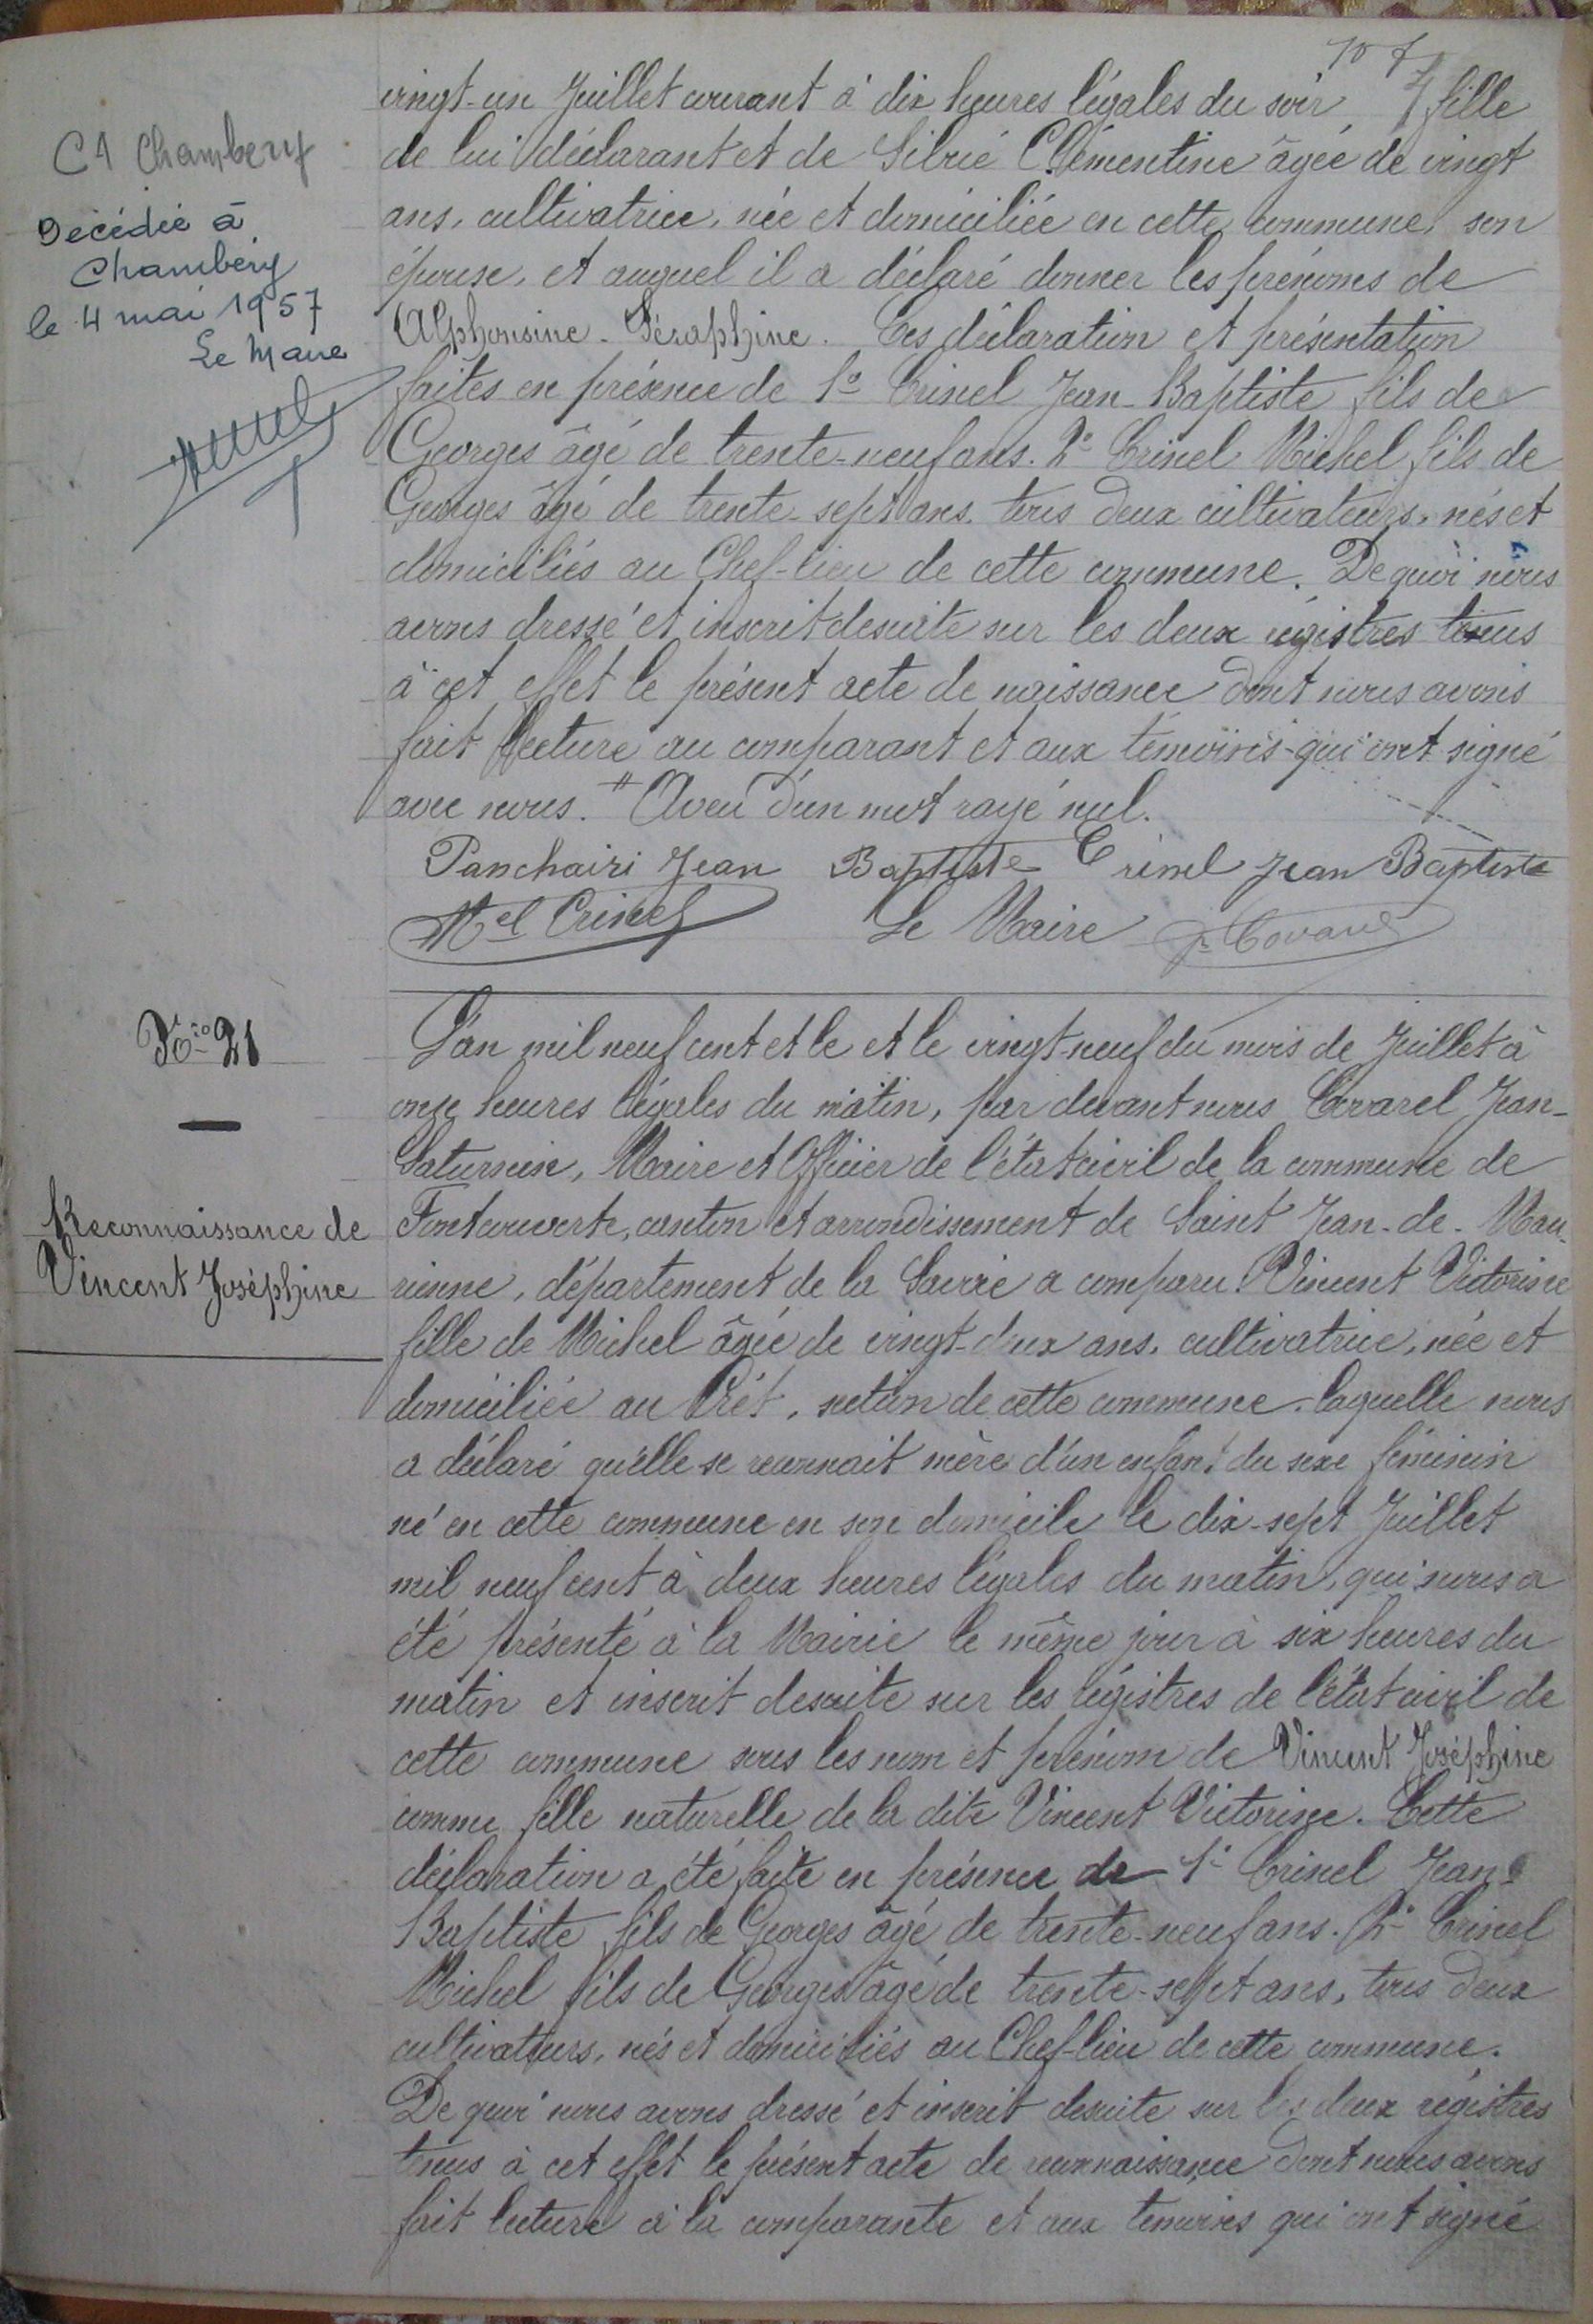 vingt-un Juillet courant à dix heures légales du soir, fille
de lui déclarant et de Silvié Clémentine âgée de vingt
ans, cultivatrice, née et domiciliée en cette commune, son
épouse, et auquel il a déclaré donner les prénoms de
Alphonsine-Séraphine. Ces déclaration et présentation
faites en présence de 1º Crinel Jean-Baptiste fils de
Georges âgé de trente-neuf ans. 2º Crinel Michel fils de
Georges âgé de trente-sept ans. tous deux cultivateurs, nés et
domiciliés au Chef-lieu de cette commune. De quoi nous
avons dressé et inscrit desuite sur les deux régistres tenus
à cet effet le présent acte de naissance dont nous avons
fait lecture au comparant et aux témoins qui ont signé
avec nous. # Aveu d'un mot rayé nul.
Panchairi Jean Baptiste Crinel Jean Baptiste
Mel Crinel Le Maire
C1 Chambery
Décédée à
Chambéry
le 4 mai 1957
Le Maire
Nº 21
Reconnaissance de
Vincent Joséphine
L'an mil neuf cent et le et le vingt-neuf du mois de Juillet à
onze heures légales du matin, par devant nous Covarel Jean-
Saturnin, Maire et Officier de l'état civil de la commune de
Fontcouverte, canton et arrondissement de Saint Jean-de-Mau-
rienne, département de la Savoie a comparu Vincent Victorine
fille de Michel âgée de vingt-deux ans, cultivatrice, née et
domiciliée au, section de cette commune laquelle nous
a déclaré qu'elle se reconnait mère d'un enfant du sexe féminin
né en cette commune en son domicile le dix-sept Juillet
mil neuf cent à deux heures légales du matin, qui nous a
été présenté à la Mairie le même jour à six heures du
matin et inscrit desuite sur les régistres de l'état civil de
cette commune sous les nom et prénom de Vincent Joséphine
comme fille naturelle de la dite Vincent Victorine. Cette
déclaration a été faite en présence de 1º Crinel Jean-
Baptiste fils de Georges âgé de trente-neuf ans. 2º Crinel
Michel fils de Georges âgé de trente-sept ans, tous deux
cultivateurs, nés et domiciliés au Chef-lieu de cette commune.
De quoi nous avons dressé et inscrit desuite sur les deux régistres
tenus à cet effet le présent acte de reconnaissance dont nous avons
fait lecture à la comparante et aux témoins qui ont signé